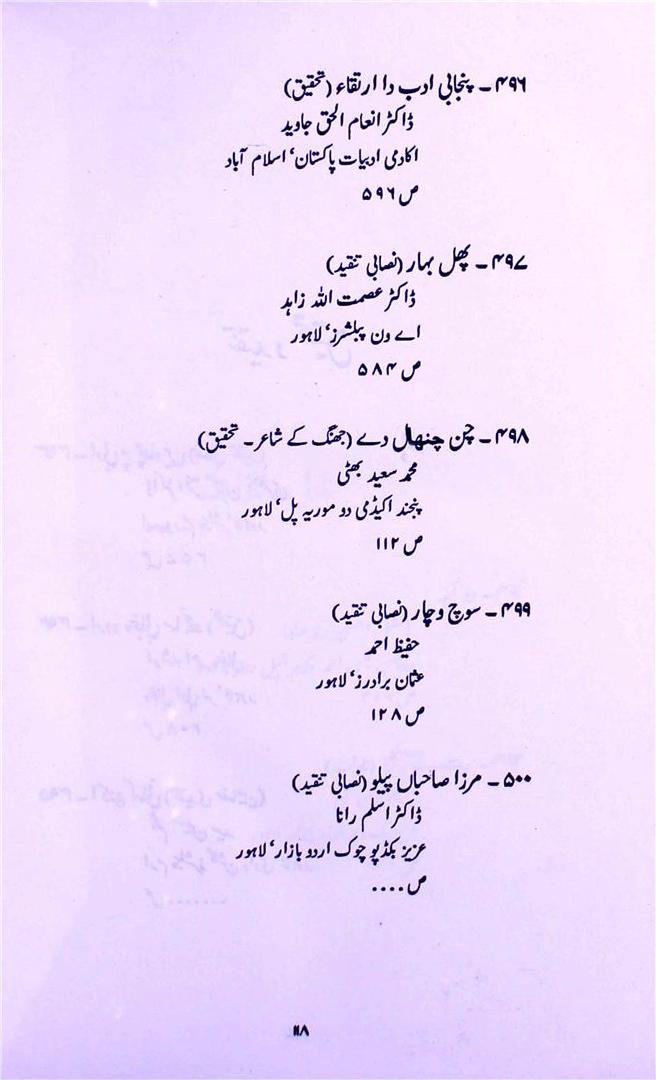 ۴۹۶ ۔ پنجابی ادب دا ارتقاء (تحقیق)
ڈاکٹر انعام الحق جاوید
اکادمی ادبیات پاکستان، اسلام آباد
ص ۵۹۶
۴۹۷ ۔ پھل بہار (نصابی تنقید)
ڈاکٹر عصمت اللہ زاہد
اے ون پبلشرز، لاہور
ص ۵۸۴
۴۹۸ ۔ چن چنھاں دے (جھنگ کے شاعر۔ تحقیق)
محمد سعید بھٹی
پنجند اکیڈمی دو موریہ پل، لاہور
ص ۱۱۲
۴۹۹ ۔ سوچ وچار (نصابی تنقید)
حفیظ احمد
عثمان برادرز، لاہور
ص ۱۲۸
۵۰۰ ۔ مرزا صاحباں پیلو (نصابی تنقید)
ڈاکٹر اسلم رانا
عزیز بکڈپو چوک اردو بازار، لاہور
ص ....
۱۱۸